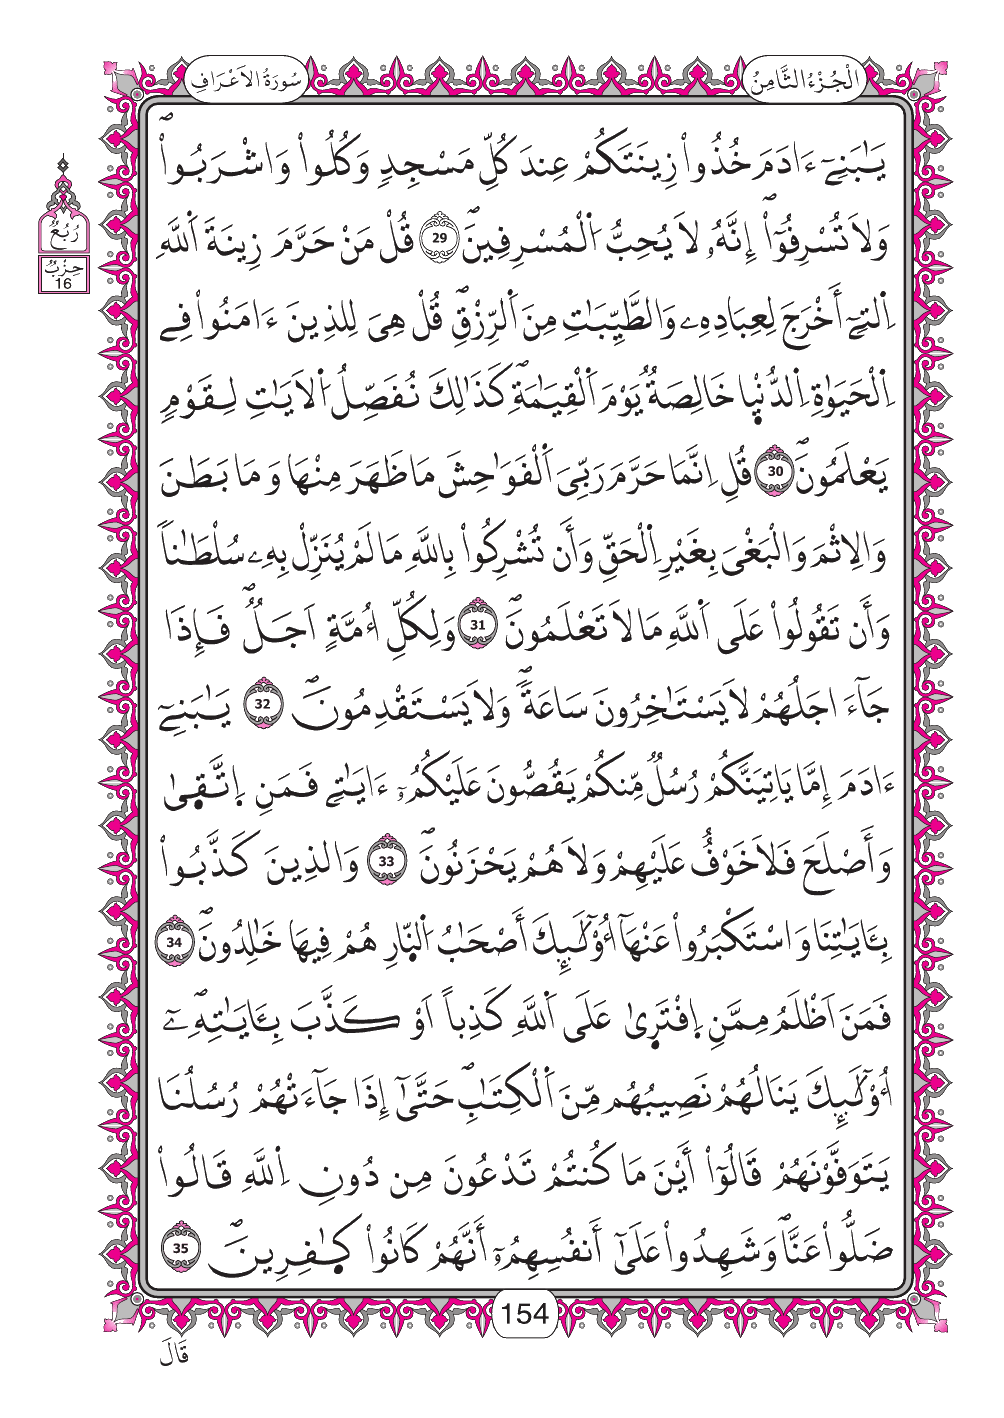 سُورَةُ الَاعْرَافِ
اَلْجُزْءُ الثَّامِنُ
يَٰبَنِےٓ ءَادَمَ خُذُواْ زِينَتَكُمْ عِندَ كُلِّ مَسْجِدٖ وَكُلُواْ وَاشْرَبُواْۖ
وَلَا تُسْرِفُوٓاْۖ إِنَّهُۥ لَا يُحِبُّ اُ۬لْمُسْرِفِينَۖ 29 قُلْ مَنْ حَرَّمَ زِينَةَ اَ۬للَّهِ
اِ۬لتِےٓ أَخْرَجَ لِعِبَادِهِۦ وَالطَّيِّبَٰتِ مِنَ اَ۬لرِّزْقِۖ قُلْ هِيَ لِلذِينَ ءَامَنُواْ فِے
اِ۬لْحَيَوٰةِ اِ۬لدُّنْي۪ا خَالِصَةٞ يَوْمَ اَ۬لْقِيَٰمَةِۖ كَذَٰلِكَ نُفَصِّلُ اُ۬لَايَٰتِ لِقَوْمٖ
يَعْلَمُونَۖ 30 قُلِ اِنَّمَا حَرَّمَ رَبِّيَ اَ۬لْفَوَٰحِشَ مَا ظَهَرَ مِنْهَا وَمَا بَطَنَ
وَالِاثْمَ وَالْبَغْيَ بِغَيْرِ اِ۬لْحَقِّ وَأَن تُشْرِكُواْ بِاللَّهِ مَا لَمْ يُنَزِّلْ بِهِۦ سُلْطَٰناٗ
وَأَن تَقُولُواْ عَلَى اَ۬للَّهِ مَا لَا تَعْلَمُونَۖ 31 وَلِكُلِّ أُمَّةٍ اَجَلٞۖ فَإِذَا
جَآءَ اجَلُهُمْ لَا يَسْتَاخِرُونَ سَاعَةٗۖ وَلَا يَسْتَقْدِمُونَۖ 32 يَٰبَنِےٓ
ءَادَمَ إِمَّا يَاتِيَنَّكُمْ رُسُلٞ مِّنكُمْ يَقُصُّونَ عَلَيْكُمُۥٓ ءَايَٰتِے فَمَنِ اِ۪تَّق۪ىٰ
وَأَصْلَحَ فَلَا خَوْفٌ عَلَيْهِمْ وَلَا هُمْ يَحْزَنُونَۖ 33 وَالذِينَ كَذَّبُواْ
بِـَٔايَٰتِنَا وَاسْتَكْبَرُواْ عَنْهَآ أُوْلَٰٓئِكَ أَصْحَٰبُ اُ۬لنّ۪ارِ هُمْ فِيهَا خَٰلِدُونَۖ 34
فَمَنَ اَظْلَمُ مِمَّنِ اِ۪فْتَر۪ىٰ عَلَى اَ۬للَّهِ كَذِباً اَوْ كَذَّبَ بِـَٔايَٰتِهِۦٓۖ
أُوْلَٰٓئِكَ يَنَالُهُمْ نَصِيبُهُم مِّنَ اَ۬لْكِتَٰبِۖ حَتَّىٰٓ إِذَا جَآءَتْهُمْ رُسُلُنَا
يَتَوَفَّوْنَهُمْ قَالُوٓاْ أَيْنَ مَا كُنتُمْ تَدْعُونَ مِن دُونِ اِ۬للَّهِ قَالُواْ
ضَلُّواْ عَنَّاۖ وَشَهِدُواْ عَلَىٰٓ أَنفُسِهِمُۥٓ أَنَّهُمْ كَانُواْ كٰ۪فِرِينَۖ 35
رُبُعُ
حِزْبٌ
16
154
قَالَ